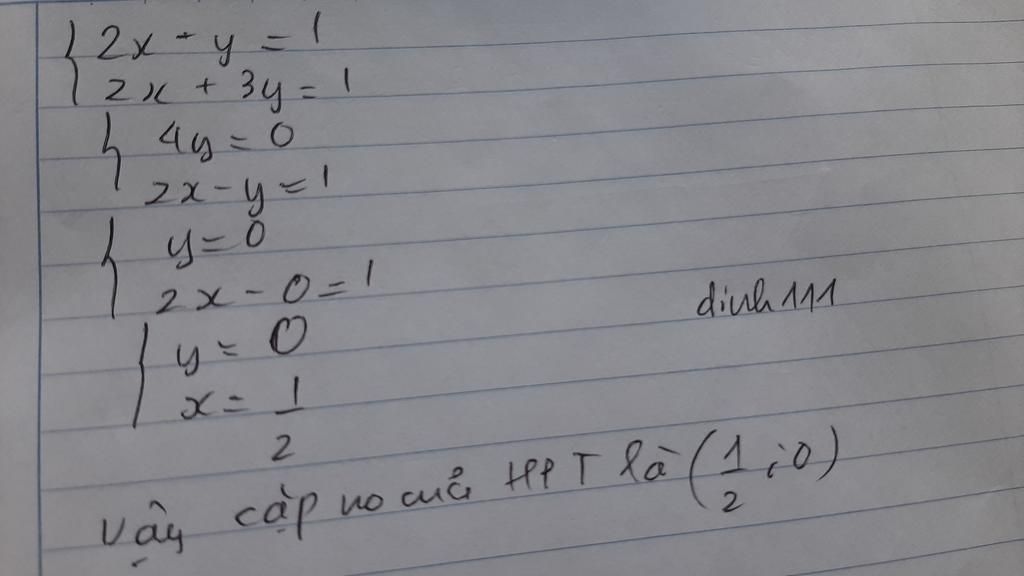 2x - y = 1
2x + 3y = 1
4y = 0
2x - y = 1
y = 0
2x - 0 = 1
dinh111
y = 0
x = 1/2
Vậy cặp no của HPT là (1/2 ; 0)